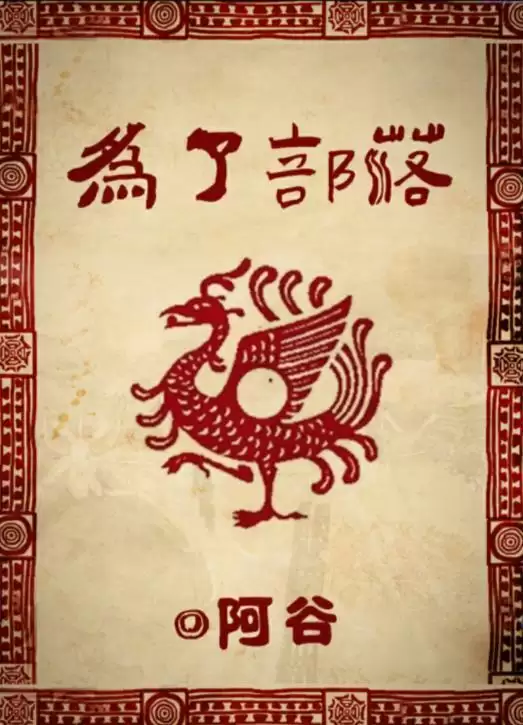 為了部落
◎阿谷